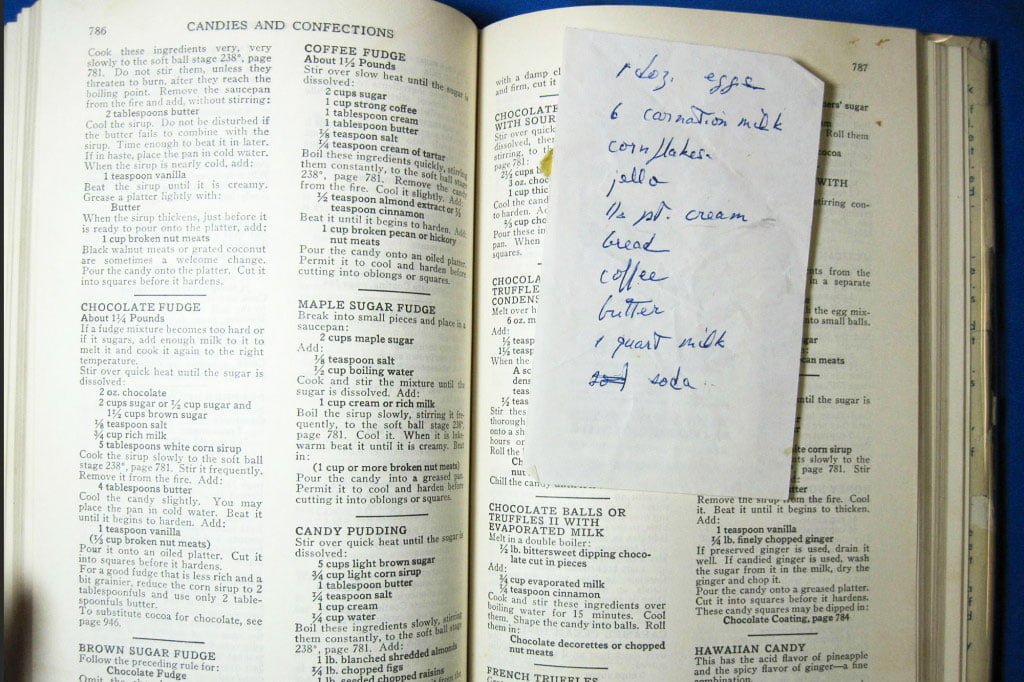 786
CANDIES AND CONFECTIONS
Cook these ingredients very, very
slowly to the soft ball stage 238°, page
781. Do not stir them, unless they
threaten to burn, after they reach the
boiling point. Remove the saucepan
from the fire and add, without stirring:
2 tablespoons butter
Cool the sirup. Do not be disturbed if
the butter fails to combine with the
sirup. Time enough to beat it in later.
If in haste, place the pan in cold water.
When the sirup is nearly cold, add:
1 teaspoon vanilla
Beat the sirup until it is creamy.
Grease a platter lightly with:
Butter
When the sirup thickens, just before it
is ready to pour onto the platter, add:
1 cup broken nut meats
Black walnut meats or grated coconut
are sometimes a welcome change.
Pour the candy onto the platter. Cut it
into squares before it hardens.
CHOCOLATE FUDGE
About 1¼ Pounds
If a fudge mixture becomes too hard or
if it sugars, add enough milk to it to
melt it and cook it again to the right
temperature.
Stir over quick heat until the sugar is
dissolved:
2 oz. chocolate
2 cups sugar or ½ cup sugar and
1½ cups brown sugar
⅛ teaspoon salt
¾ cup rich milk
5 tablespoons white corn sirup
Cook the sirup slowly to the soft ball
stage 238°, page 781. Stir it frequently.
Remove it from the fire. Add:
4 tablespoons butter
Cool the candy slightly. You may
place the pan in cold water. Beat it
until it begins to harden. Add:
1 teaspoon vanilla
(½ cup broken nut meats)
Pour it onto an oiled platter. Cut it
into squares before it hardens.
For a good fudge that is less rich and a
bit grainier, reduce the corn sirup to 2
tablespoonfuls and use only 2 table-
spoonfuls butter.
To substitute cocoa for chocolate, see
page 946.
BROWN SUGAR FUDGE
Follow the preceding rule for:
Chocolate Fudge
COFFEE FUDGE
About 1½ Pounds
Stir over slow heat until the sugar is
dissolved:
2 cups sugar
1 cup strong coffee
1 tablespoon cream
1 tablespoon butter
⅛ teaspoon salt
¼ teaspoon cream of tartar
Boil these ingredients quickly, stirring
them constantly, to the soft ball stage
238°, page 781. Remove the candy
from the fire. Cool it slightly. Add:
½ teaspoon almond extract or ½
teaspoon cinnamon
Beat it until it begins to harden. Add:
1 cup broken pecan or hickory
nut meats
Pour the candy onto an oiled platter.
Permit it to cool and harden before
cutting into oblongs or squares.
MAPLE SUGAR FUDGE
Break into small pieces and place in a
saucepan:
2 cups maple sugar
Add:
⅛ teaspoon salt
½ cup boiling water
Cook and stir the mixture until the
sugar is dissolved. Add:
1 cup cream or rich milk
Boil the sirup slowly, stirring it fre-
quently, to the soft ball stage 238°,
page 781. Cool it. When it is luke-
warm beat it until it is creamy. Beat
in:
(1 cup or more broken nut meats)
Pour the candy into a greased pan.
Permit it to cool and harden before
cutting it into oblongs or squares.
CANDY PUDDING
Stir over quick heat until the sugar is
dissolved:
5 cups light brown sugar
¾ cup light corn sirup
1 tablespoon butter
¼ teaspoon salt
1 cup cream
¾ cup water
Boil these ingredients slowly, stirring
them constantly, to the soft ball stage
238°, page 781. Add:
1 lb. blanched shredded almonds
¼ lb. chopped figs
¼ lb. seeded chopped raisins
1 doz. eggs
6 carnation milk
corn flakes
jello
½ pt. cream
bread
coffee
butter
1 quart milk
soda
787
with a damp
and firm, cut it
CHOCOLATE
WITH SOUR
Stir over quick
dissolved,
stirring, to
page 781:
3 oz.
Cool the
to harden.
Pour these
pan. When
squares.
TRUFFLE
Melt over
6 oz.
Add:
When the
Stir these
onto a
hours or
Roll the
nut
Chill the candy
CHOCOLATE BALLS OR
TRUFFLES II WITH
EVAPORATED MILK
Melt in a double boiler:
½ lb. bittersweet dipping choco-
late cut in pieces
Add:
¾ cup evaporated milk
¼ teaspoon cinnamon
Cook and stir these ingredients over
boiling water for 15 minutes. Cool
them. Shape the candy into balls. Roll
them in:
Chocolate decorettes or chopped
nut meats
FRENCH TRUFFLES
sugar
Roll them
cocoa
WITH
stirring
from the
in a separate
the egg mix-
into small balls.
meats
the sugar is
corn sirup
slowly to the
page 781. Stir
Remove the sirup from the fire. Cool
it. Beat it until it begins to thicken.
Add:
1 teaspoon vanilla
¼ lb. finely chopped ginger
If preserved ginger is used, drain it
well. If candied ginger is used, wash
the sugar from it in the milk, dry the
ginger and chop it.
Pour the candy onto a greased platter.
Cut it into squares before it hardens.
These candy squares may be dipped in:
Chocolate Coating, page 784
HAWAIIAN CANDY
This has the acid flavor of pineapple
and the spicy flavor of ginger—a fine
combination.